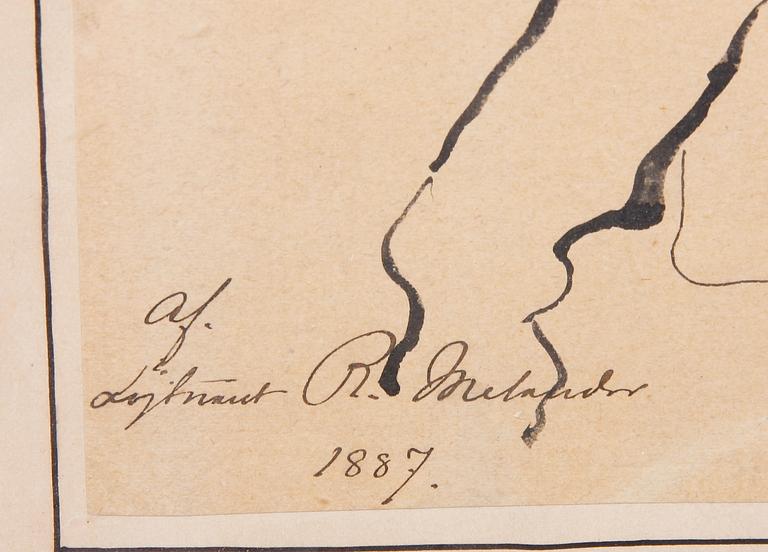 af.
Löjtnant R. Melander
1887.